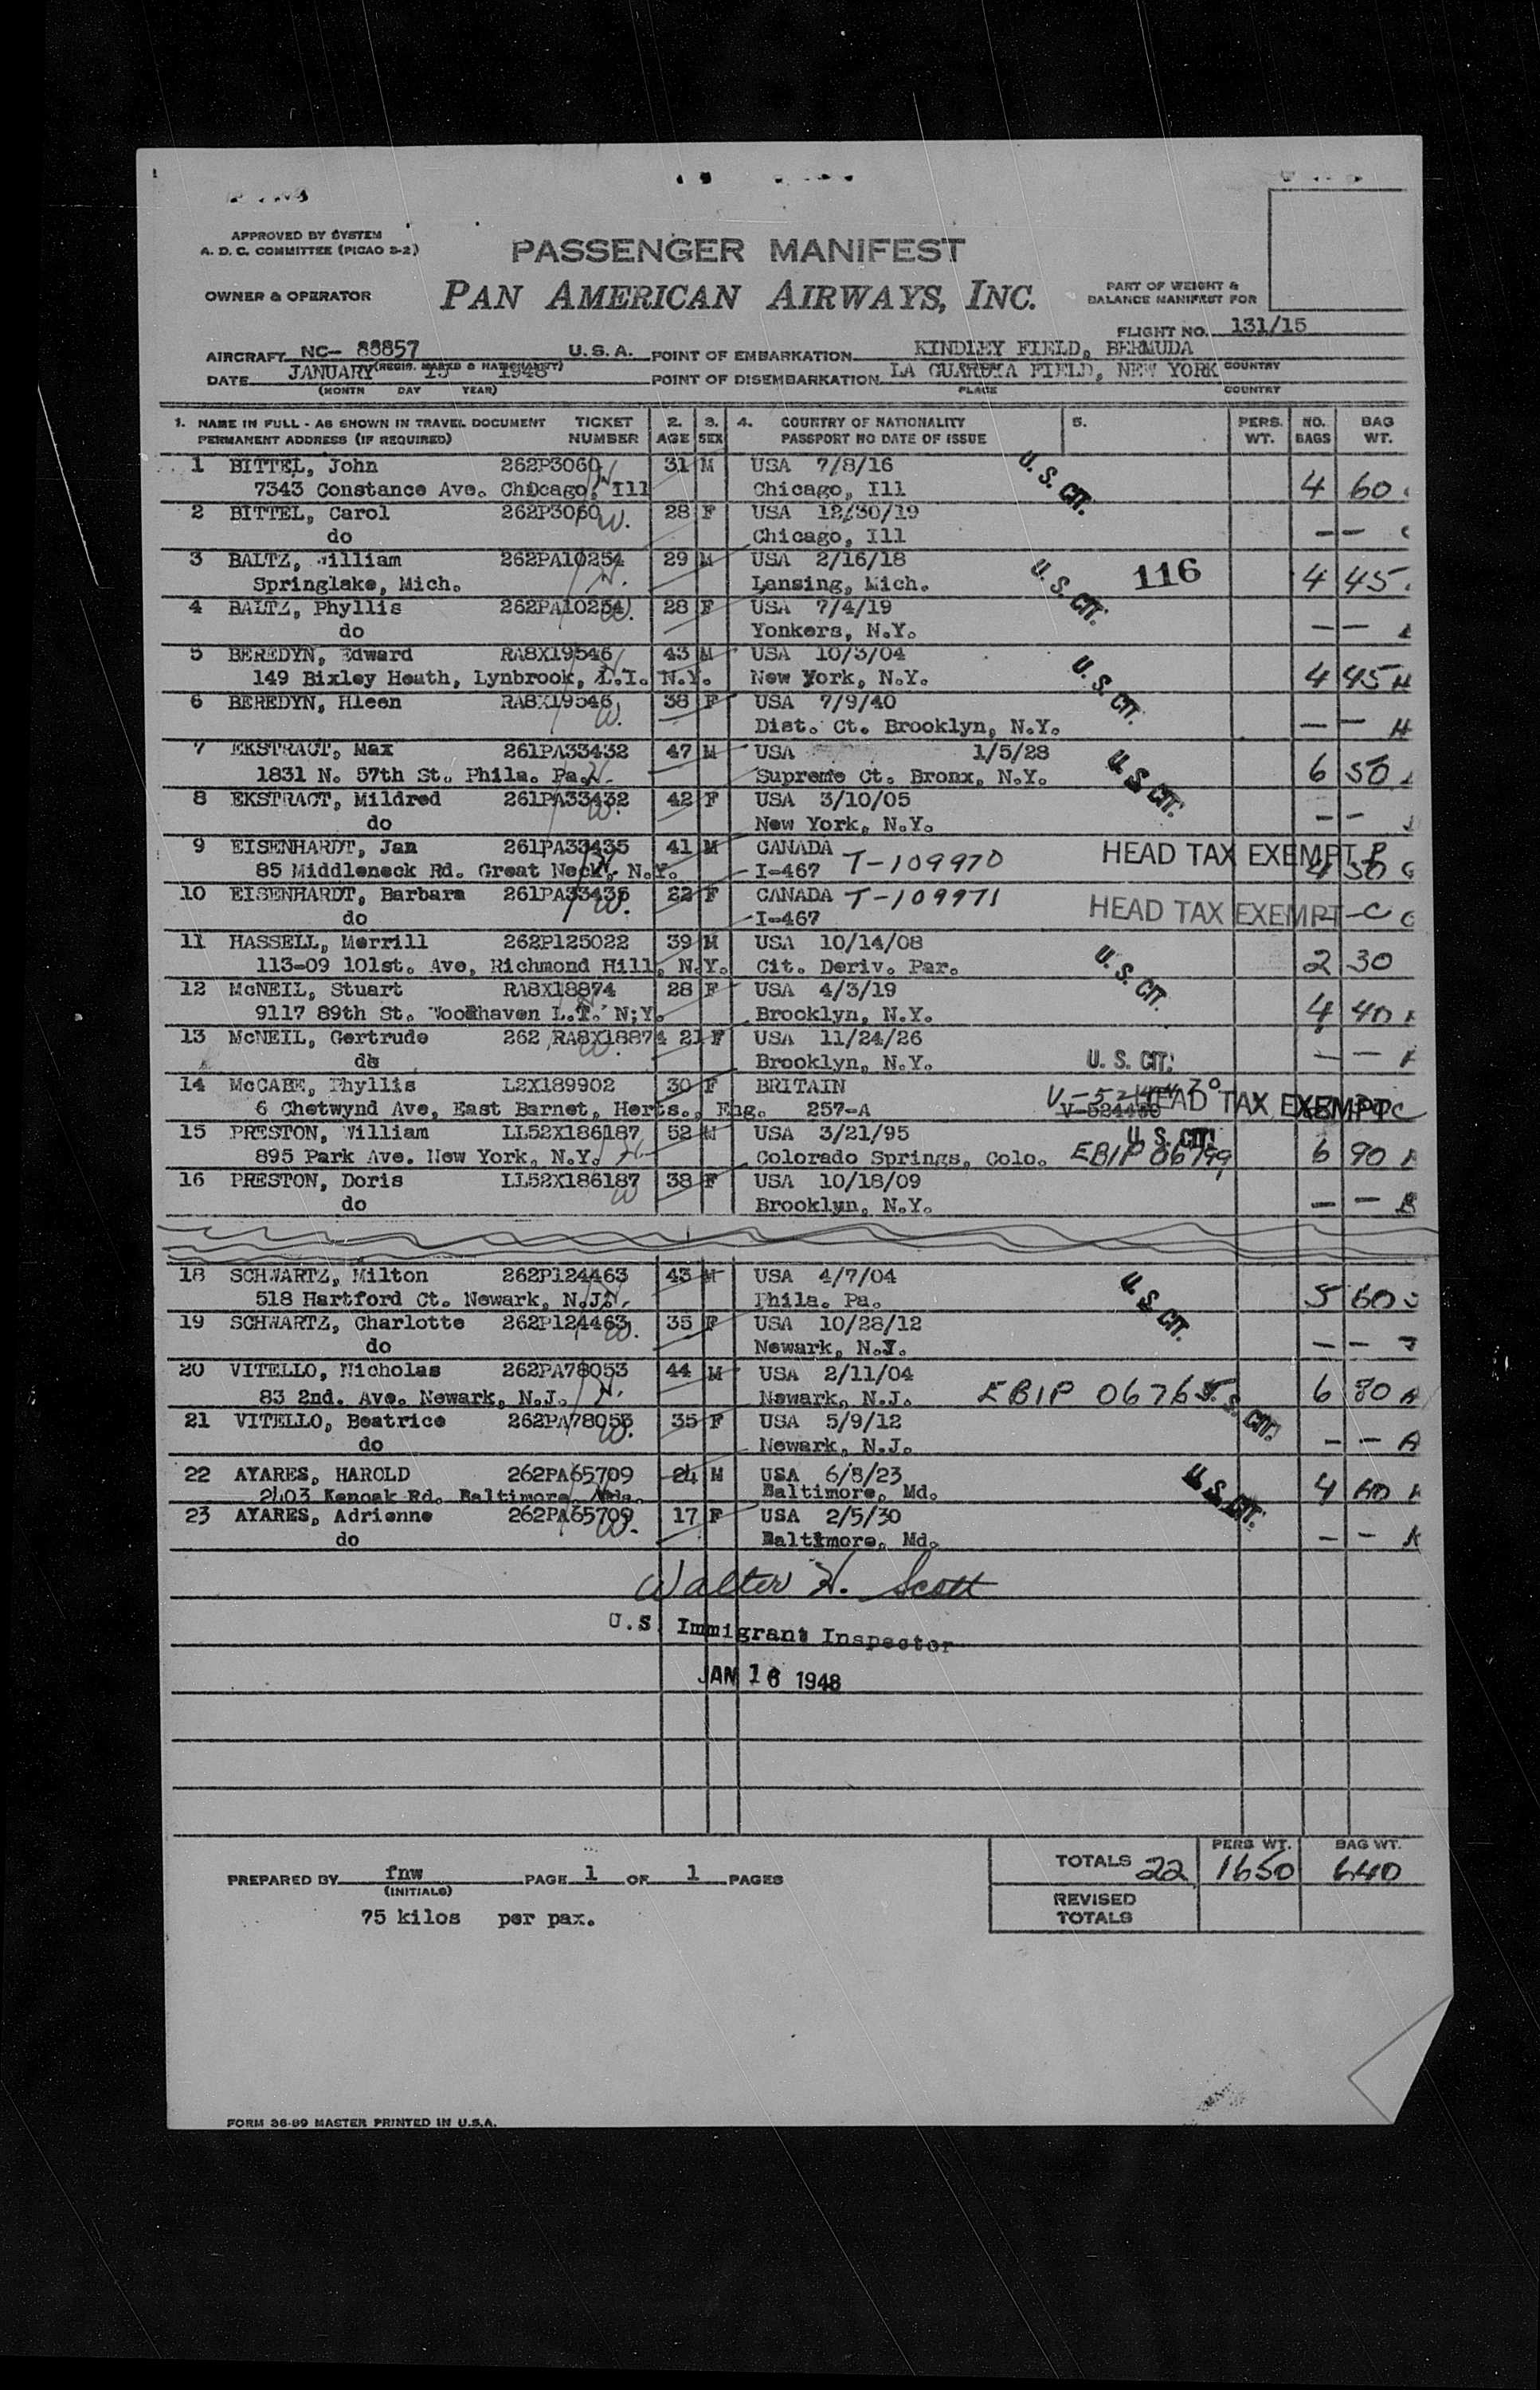 APPROVED BY SYSTEM
A. D. C. COMMITTEE (PICAO S-2)
PASSENGER MANIFEST
OWNER & OPERATOR PAN AMERICAN AIRWAYS, INC.
PART OF WEIGHT &
BALANCE MANIFEST FOR
FLIGHT NO. 131/15
AIRCRAFT NC- 88857 U.S.A. POINT OF EMBARKATION KINDLEY FIELD, BERMUDA
(REGIS. MARKS & NATIONALITY) COUNTRY
DATE JANUARY 15 1948 POINT OF DISEMBARKATION LA GUARDIA FIELD, NEW YORK
(MONTH DAY YEAR) PLACE COUNTRY
1. NAME IN FULL - AS SHOWN IN TRAVEL DOCUMENT TICKET 2. 3. 4. COUNTRY OF NATIONALITY 5. PERS. NO. BAG
PERMANENT ADDRESS (IF REQUIRED) NUMBER AGE SEX PASSPORT NO DATE OF ISSUE WT. BAGS WT.
1 BITTEL, John 262P3060 31 M USA 7/8/16 U. S. CIT.
7343 Constance Ave. Chicago, Ill Chicago, Ill 4 60
2 BITTEL, Carol 262P3060 W. 28 F USA 12/30/19
do Chicago, Ill — —
3 BALTZ, William 262PA10254 29 M USA 2/16/18 U. S. CIT. 116
Springlake, Mich. Lansing, Mich. 4 45
4 BALTZ, Phyllis 262PA10254 W. 28 F USA 7/4/19
do Yonkers, N.Y. — —
5 BEREDYN, Edward RA8X19546 43 M USA 10/3/04 U. S. CIT.
149 Bixley Heath, Lynbrook, L.I. N.Y. New York, N.Y. 4 45 H
6 BEREDYN, Hleen RA8X19546 W. 38 F USA 7/9/40
do Dist. Ct. Brooklyn, N.Y. — — H
7 EKSTRACT, Max 261PA33432 47 M USA 1/5/28 U. S. CIT.
1831 N. 57th St. Phila. Pa. Supreme Ct. Bronx, N.Y. 6 50
8 EKSTRACT, Mildred 261PA33432 W. 42 F USA 3/10/05
do New York, N.Y. — —
9 EISENHARDT, Jan 261PA33435 41 M CANADA T-109970 HEAD TAX EXEMPT P
85 Middleneck Rd. Great Neck, N.Y. I-467 4 50 G
10 EISENHARDT, Barbara 261PA33435 W. 22 F CANADA T-109971 HEAD TAX EXEMPT-C G
do I-467
11 HASSELL, Merrill 262P125022 39 M USA 10/14/08 U. S. CIT.
113-09 101st. Ave, Richmond Hill, N.Y. Cit. Deriv. Par. 2 30
12 McNEIL, Stuart RA8X18874 28 F USA 4/3/19
9117 89th St. Woodhaven L.I. N;Y. Brooklyn, N.Y. 4 40
13 McNEIL, Gertrude 262 RA8X18874 21 F USA 11/24/26 U. S. CIT.
do Brooklyn, N.Y. — —
14 McCABE, Phyllis L2X189902 30 F BRITAIN HEAD TAX EXEMPT
6 Chetwynd Ave, East Barnet, Herts., Eng. 257-A
15 PRESTON, William LL52X186187 52 M USA 3/21/95 U. S. CIT.
895 Park Ave. New York, N.Y. Colorado Springs, Colo. EBIP 06799 6 90
16 PRESTON, Doris LL52X186187 W 38 F USA 10/18/09
do Brooklyn, N.Y. — — B
18 SCHWARTZ, Milton 262P124463 43 M USA 4/7/04 U. S. CIT.
518 Hartford Ct. Newark, N.J. Phila. Pa. 5 60 J
19 SCHWARTZ, Charlotte 262P124463 W. 35 F USA 10/28/12
do Newark, N.J. — — J
20 VITELLO, Nicholas 262PA78053 44 M USA 2/11/04
83 2nd. Ave. Newark, N.J. Newark, N.J. EBIP 06765 U. S. CIT. 6 80 A
21 VITELLO, Beatrice 262PA78053 W. 35 F USA 5/9/12
do Newark, N.J. — — A
22 AYARES, HAROLD 262PA65709 24 M USA 6/8/23 U. S. CIT.
2403 Kenoak Rd. Baltimore, Mds. Baltimore, Md. 4 60 K
23 AYARES, Adrienne 262PA65709 W. 17 F USA 2/5/30
do Baltimore, Md. — — K
Walter H. Scott
U.S. Immigrant Inspector
JAN 16 1948
TOTALS 22 PERS WT. 1650 BAG WT. 640
PREPARED BY fnw PAGE 1 OF 1 PAGES
(INITIALS)
REVISED
TOTALS
75 kilos per pax.
FORM 36-89 MASTER PRINTED IN U.S.A.